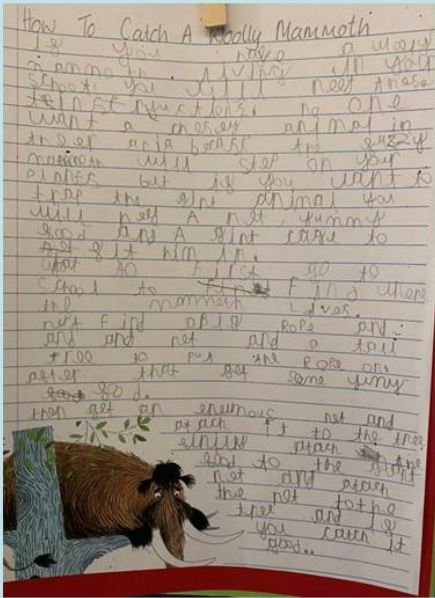 How To Catch A Woolly Mammoth
If you have a wooly
mammoth living in your
school you will neet these
instructions. no one
want a chesey animal in
there aria becase the guzzy
mammoth will step on your
plants but if you want to
trap the gint animal you
will need A net, yummy
food and A gint cage to
fit him in.
what to First go to
school to Find where
the mammoth Loves.
next Find a big Rope and
and and net and a tall
tree to put the Rope on.
after that get some yumy
good.
then get an enoumous net and
attach it to the tree.
attach the
food to the giant
net and attach
the net to the
tree and if
you catch it
good..